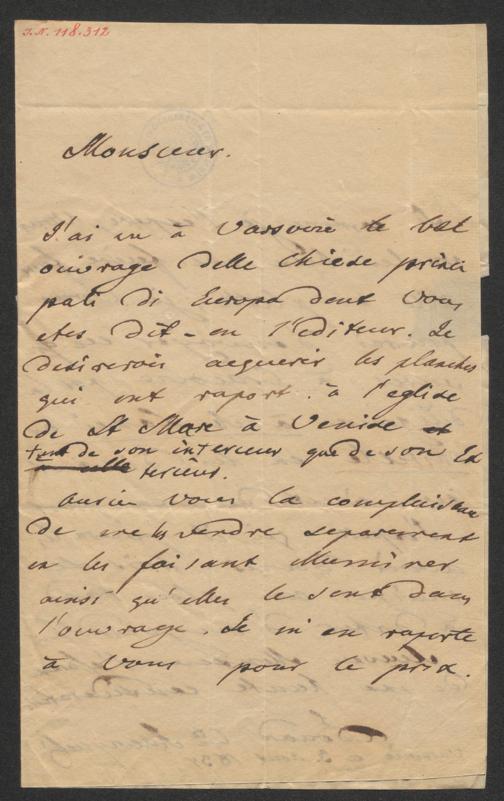 J.N. 118.312
Monsieur.
J'ai vu à Varsovie le bel
ouvrage delle Chiese princi
pali di Europa dont vous
etes dit-on l'editeur. Je
desirerois acquerir les planches
qui ont raport à l'eglise
de St Marc à Venise et
tant de son interieur que de son Ex
terieur.
auriez vous la complaisance
de me les vendre separement
en les faisant illuminer
ainsi qu'elles le sont dans
l'ouvrage. Je m'en raporte
à vous pour le prix.